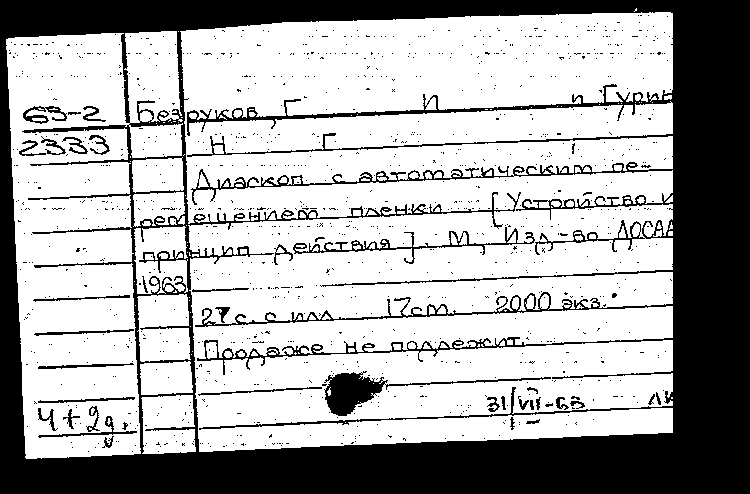 63-2 Безруков, Г И п Гурин
2333 Н Г
Диаскоп с автоматическим пе-
ремещением пленки [Устройство и
принцип действия]. М, Изд-во ДОСАА
1963
27 с. с илл. 17 см. 2000 экз.
Продаже не подлежит.
31/VII-63
4+2д.